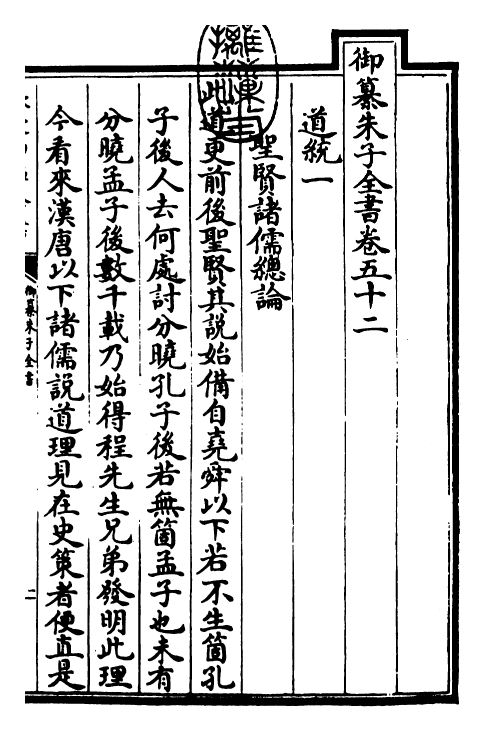 御纂朱子全書卷五十二
道統一
聖賢諸儒總論
此道更前後聖賢其說始備自堯舜以下若不生箇孔
子後人去何處討分曉孔子後若無箇孟子也未有
分曉孟子後數千載乃始得程先生兄弟發明此理
今看來漢唐以下諸儒說道理見在史策者便直是
御纂朱子全書
二